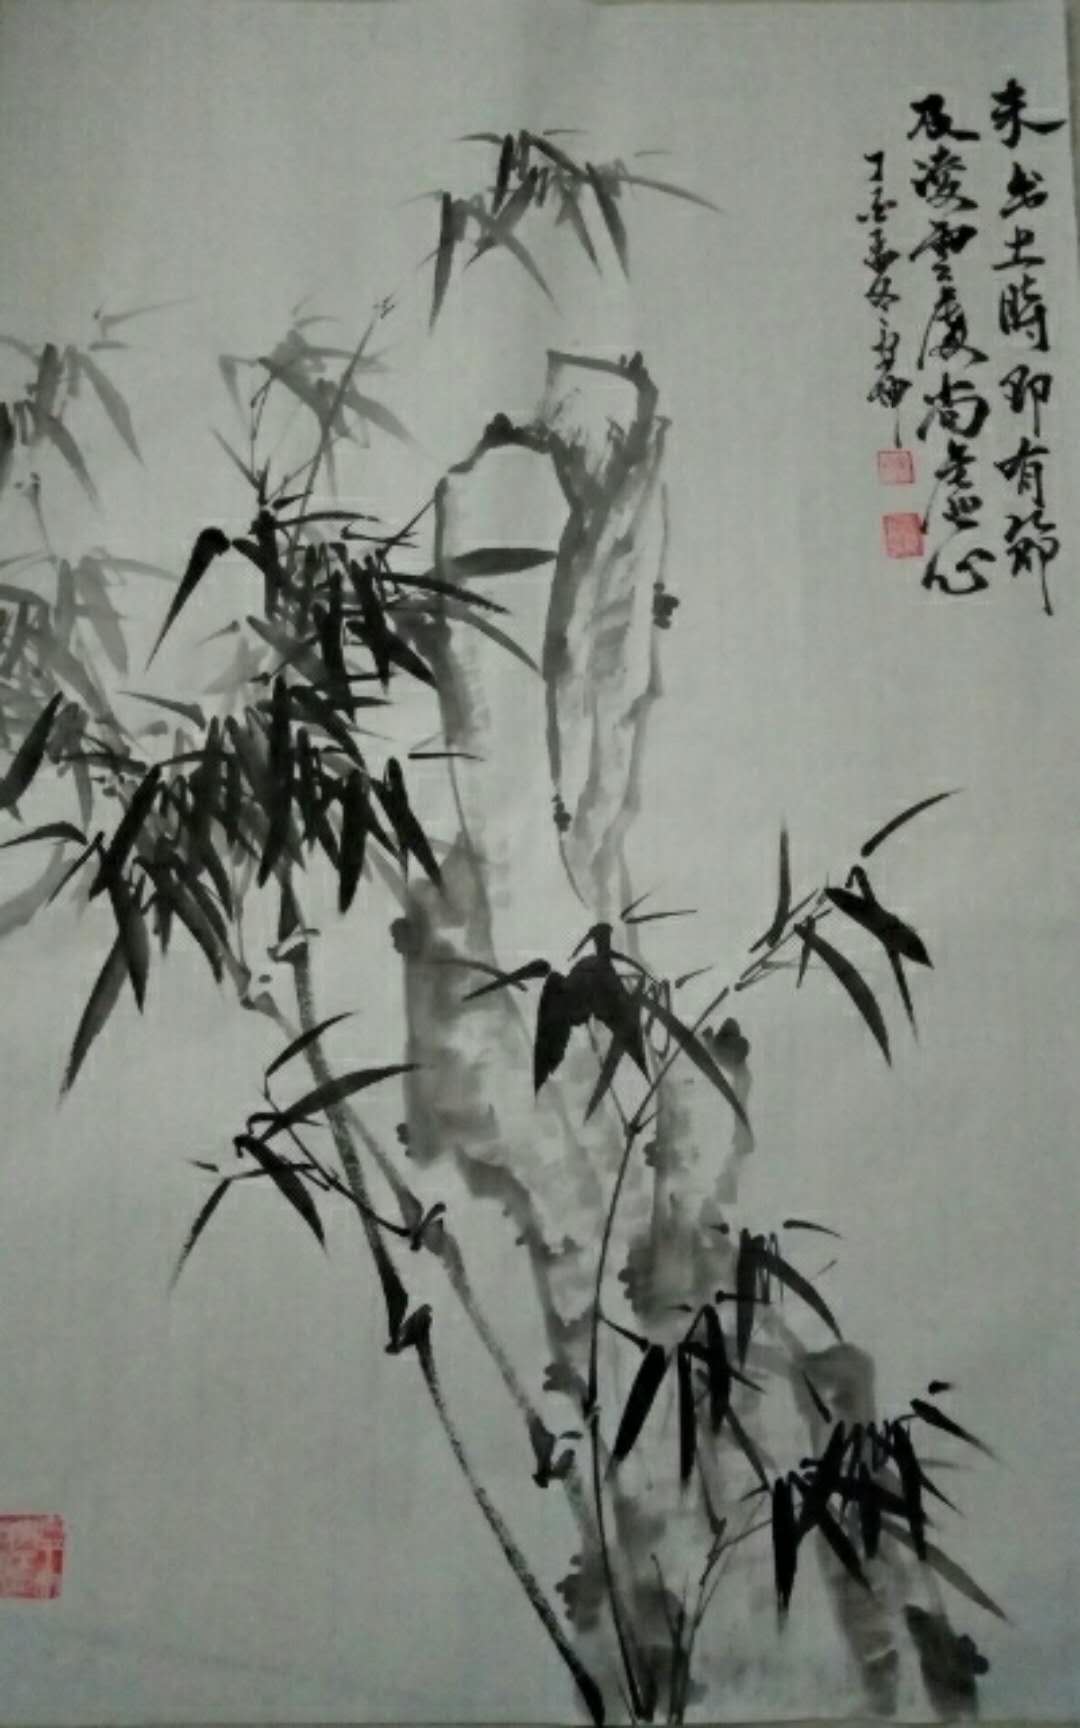 未出土時即有節
及凌雲處尚虛心
丁酉孟冬